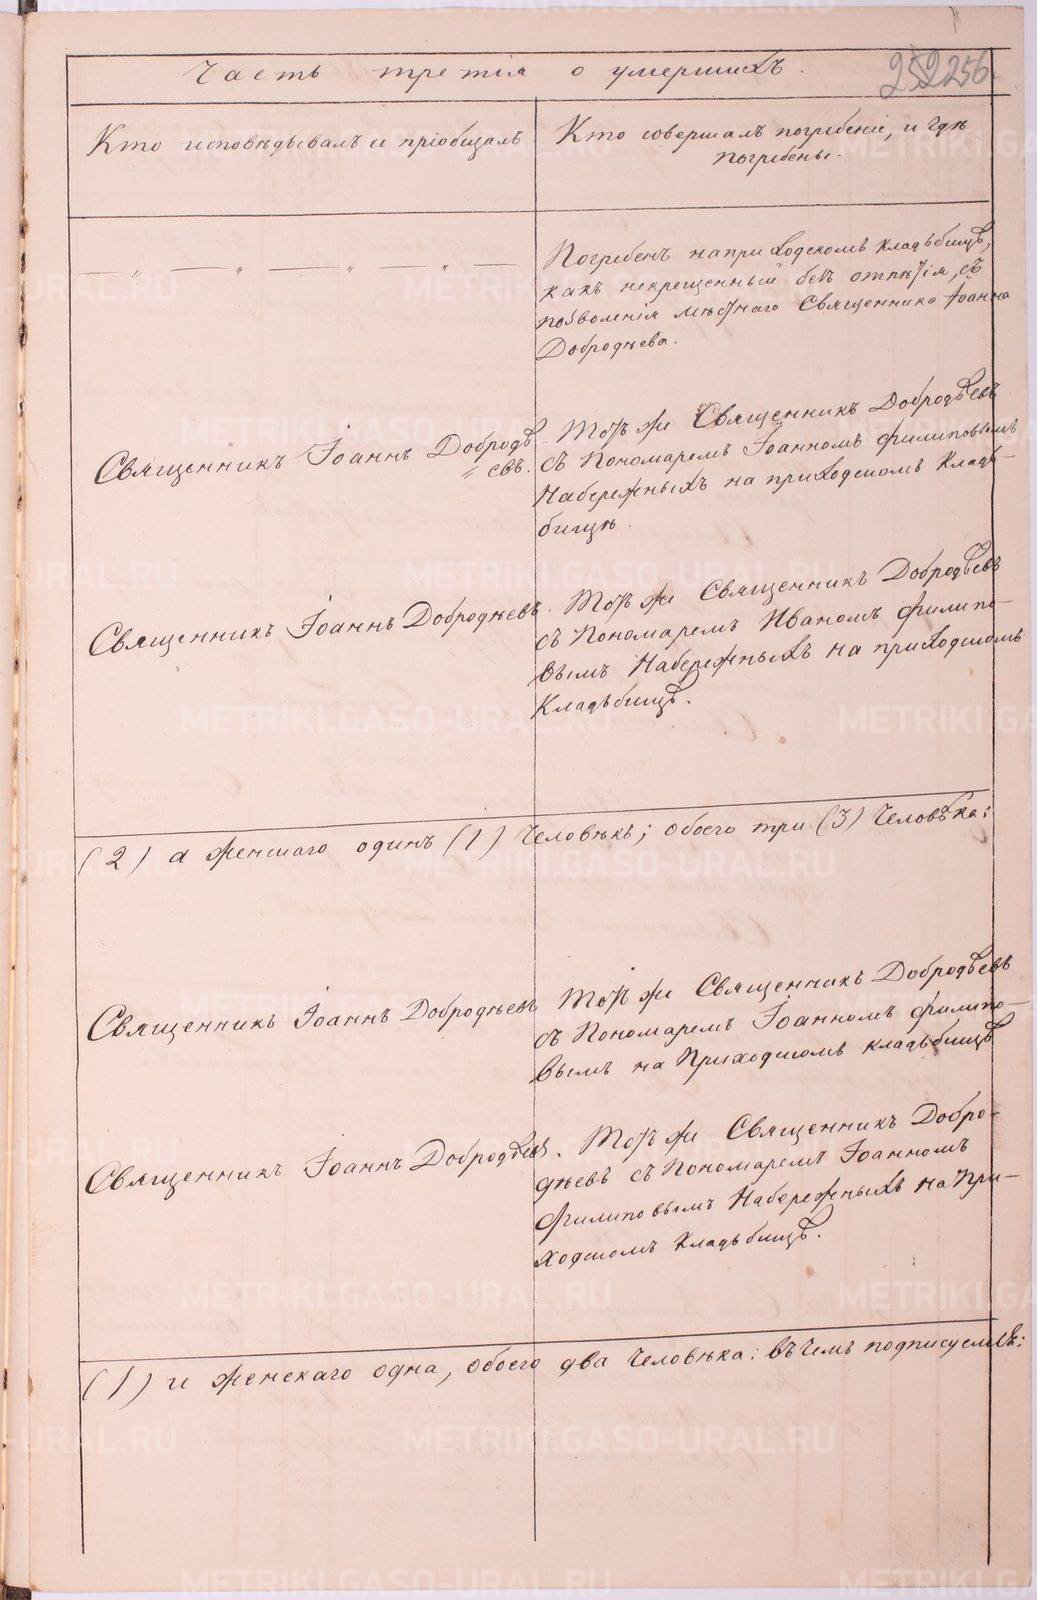 Часть третія о умершихъ.
252 256
Кто исповѣдывалъ и пріобщалъ.
Кто совершалъ погребеніе, и гдѣ
погребены.
Погребенъ на приходскомъ кладьбищѣ,
какъ некрещенный безъ отпѣтія, съ
позволенія мѣстнаго Священника Іоанна
Добродѣева.
Священникъ Іоаннъ Добродѣ
евъ.
Тотъ же Священникъ Добродѣевъ
съ Пономаремъ Іоанномъ Филиповымъ
Набережныхъ на приходскомъ кладь-
бищѣ.
Священникъ Іоаннъ Добродѣевъ.
Тотъ же Священникъ Добродѣевъ
съ Пономаремъ Иваномъ Филипо-
вымъ Набережныхъ на приходскомъ
кладьбищѣ.
(2) а женскаго одинъ (1) человѣкъ; обоего три (3) человѣка:
Священникъ Іоаннъ Добродѣевъ
Тотъ же Священникъ Добродѣевъ
съ Пономаремъ Іоанномъ Филипо-
вымъ на Приходскомъ кладьбищѣ
Священникъ Іоаннъ Добродѣевъ.
Тотъ же Священникъ Добро-
дѣевъ съ Пономаремъ Іоанномъ
Филиповымъ Набережныхъ на При-
ходскомъ кладьбищѣ.
(1) и женскаго одна, обоего два человѣка: въ чемъ подписуемся:
METRIKI.GASO-URAL.RU